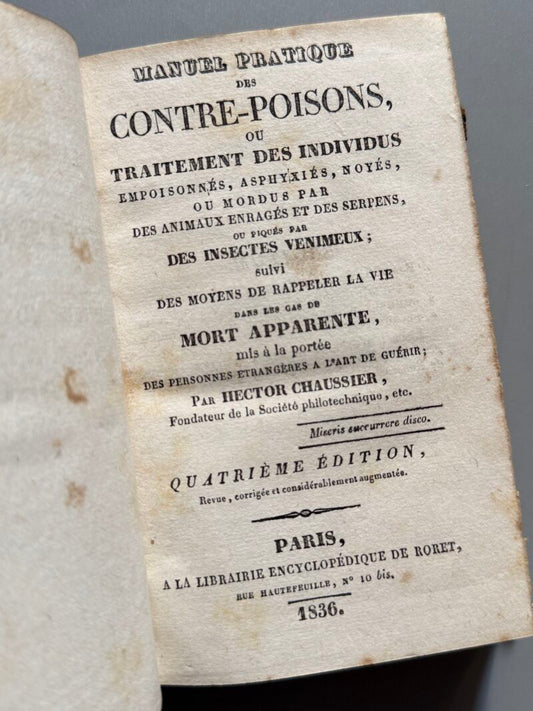 MANUEL PRATIQUE
DES
CONTRE-POISONS,
OU
TRAITEMENT DES INDIVIDUS
EMPOISONNÉS, ASPHYXIÉS, NOYÉS,
OU MORDUS PAR
DES ANIMAUX ENRAGÉS ET DES SERPENS,
OU PIQUÉS PAR
DES INSECTES VENIMEUX;
suivi
DES MOYENS DE RAPPELER LA VIE
DANS LES CAS DE
MORT APPARENTE,
mis à la portée
DES PERSONNES ETRANGÈRES A L'ART DE GUÉRIR;
PAR HECTOR CHAUSSIER,
Fondateur de la Société philotechnique, etc.
Miseris succurrere disco.
QUATRIÈME ÉDITION,
Revue, corrigée et considérablement augmentée.
PARIS,
A LA LIBRAIRIE ENCYCLOPÉDIQUE DE RORET,
RUE HAUTEFEUILLE, N° 10 bis.
1836.